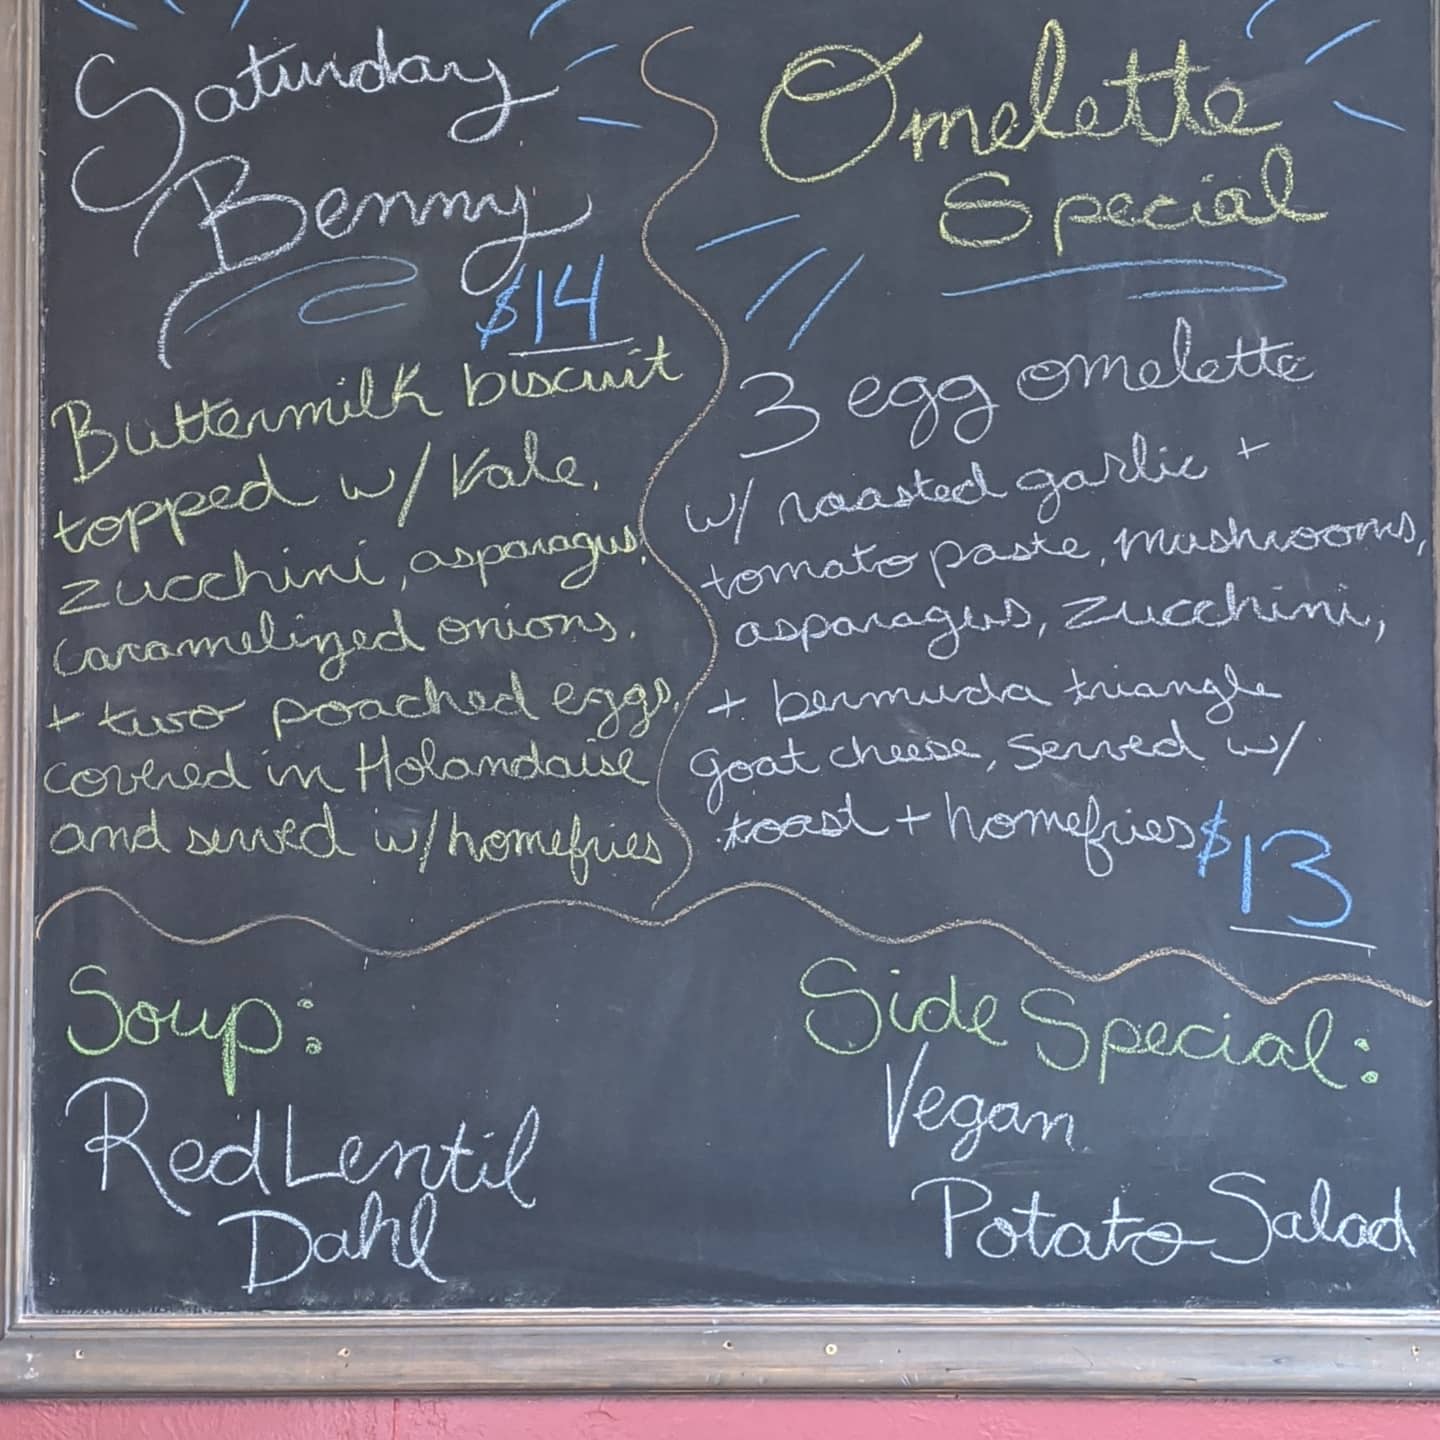 Saturday
Benny
$14
Buttermilk biscuit
topped w/ Kale,
zucchini, asparagus,
caramelized onions,
+ two poached eggs,
covered in Holandaise
and served w/ homefries
Omelette
Special
3 egg omelette
w/ roasted garlic +
tomato paste, mushrooms,
asparagus, zucchini,
+ bermuda triangle
goat cheese, served w/
toast + homefries $13
Soup:
Red Lentil
Dahl
Side Special:
Vegan
Potato Salad